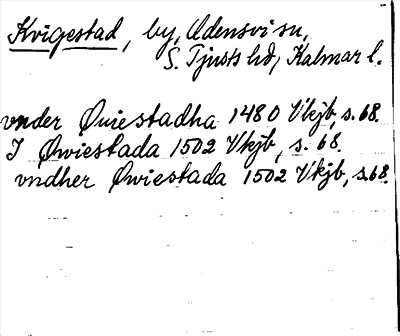 Kvigestad, by, Odensvi sn,
S. Tjusts hd, Kalmar l.
vnder Øuiestadha 1480 Vkjb, s. 68.
J Øwiestada 1502 Vkjb, s. 68.
vndher Øwiestada 1502 Vkjb, s. 68.